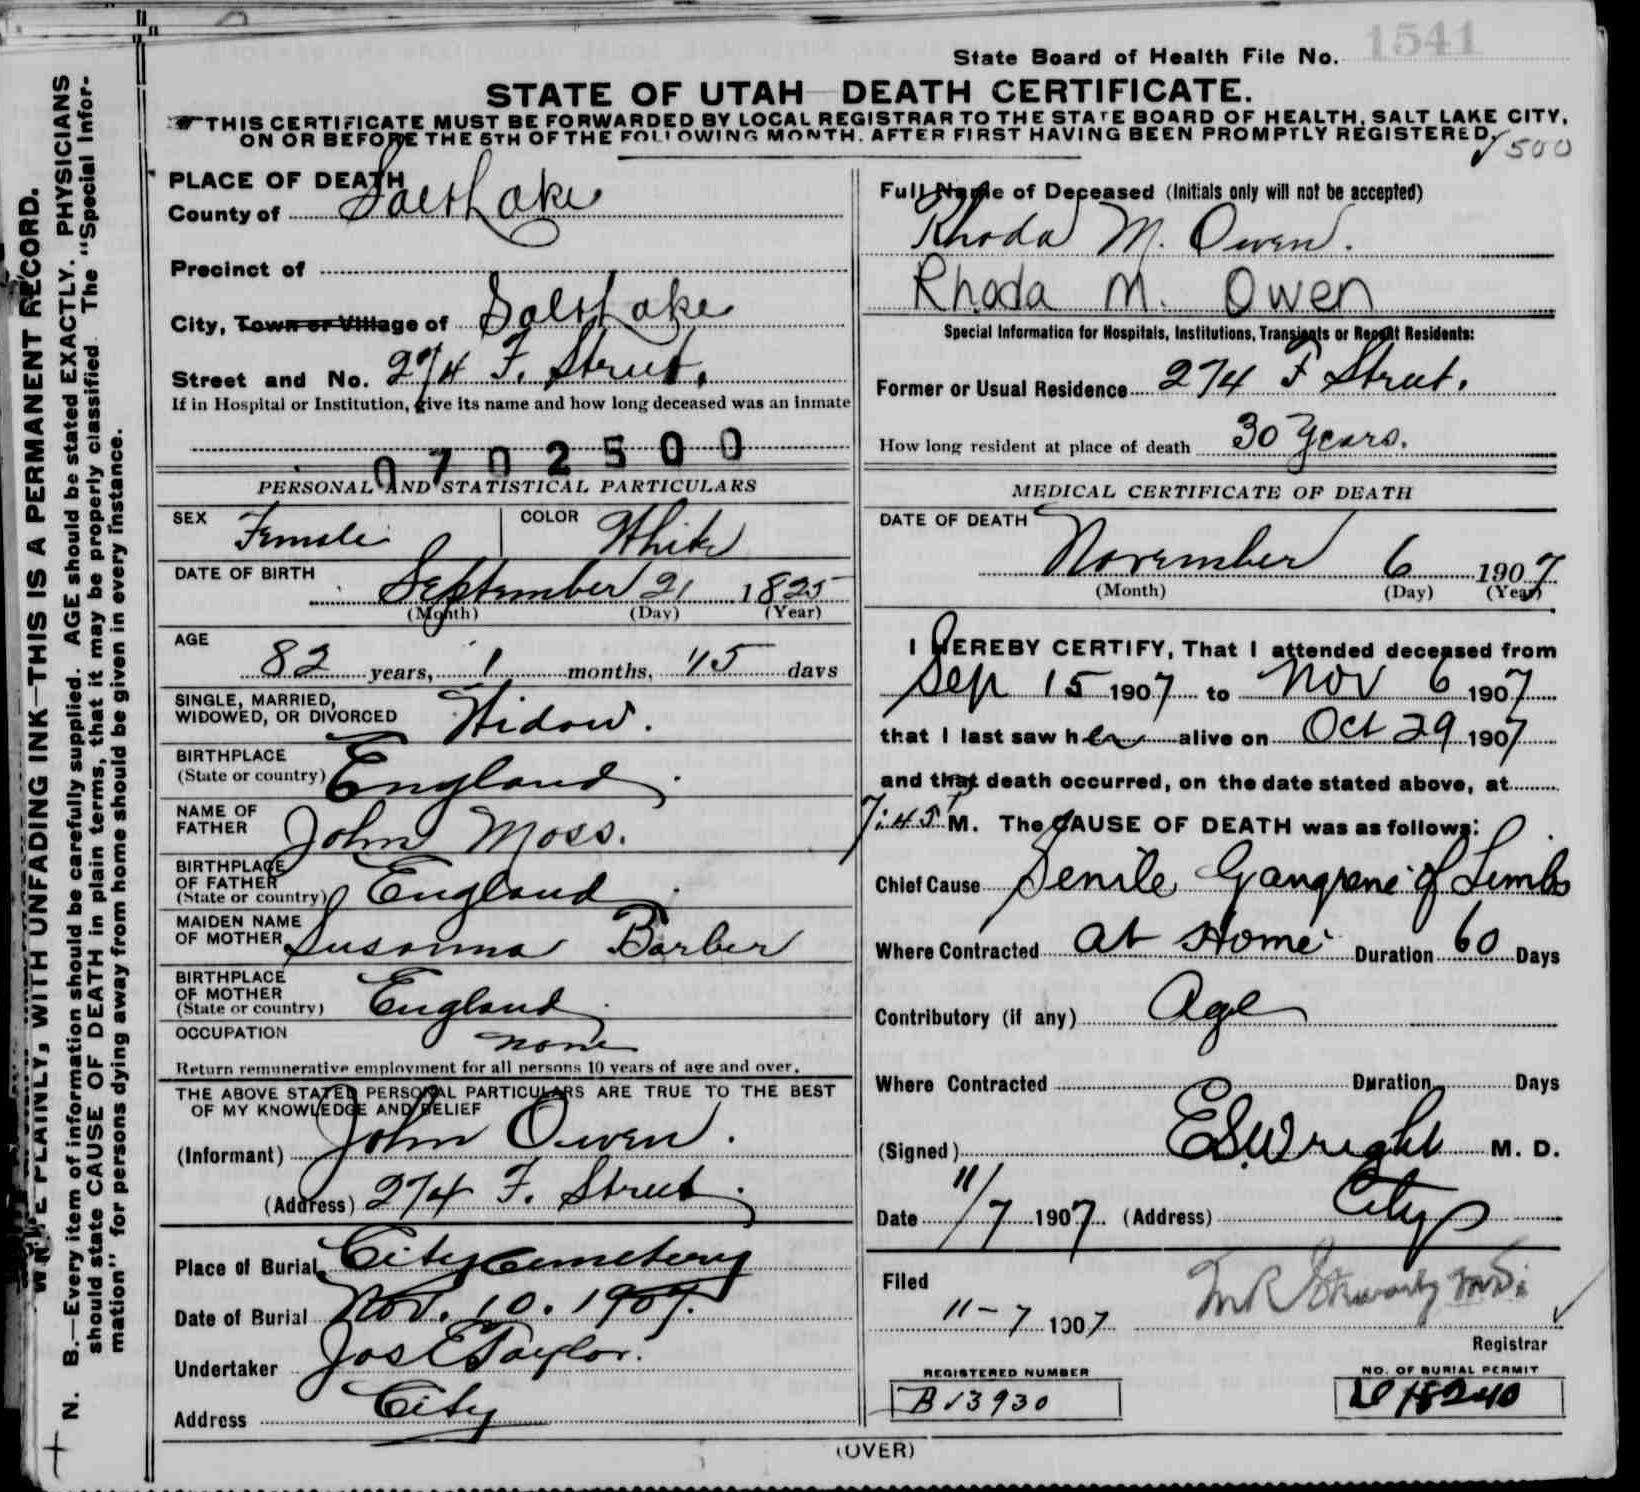 1541
State Board of Health File No.
STATE OF UTAH DEATH CERTIFICATE.
THIS CERTIFICATE MUST BE FORWARDED BY LOCAL REGISTRAR TO THE STATE BOARD OF HEALTH, SALT LAKE CITY,
ON OR BEFORE THE 5TH OF THE FOLLOWING MONTH, AFTER FIRST HAVING BEEN PROMPTLY REGISTERED.
500
PLACE OF DEATH
County of Salt Lake
Precinct of
City, Town or Village of Salt Lake
Street and No. 274 F. Street.
If in Hospital or Institution, give its name and how long deceased was an inmate
0702500
PERSONAL AND STATISTICAL PARTICULARS
SEX Female COLOR White
DATE OF BIRTH
September 21 1825
(Month) (Day) (Year)
AGE
82 years, 1 months, 15 days
SINGLE, MARRIED,
WIDOWED, OR DIVORCED Widow.
BIRTHPLACE
(State or country) England.
NAME OF
FATHER John Moss.
BIRTHPLACE
OF FATHER
(State or country) England.
MAIDEN NAME
OF MOTHER Susanna Barber
BIRTHPLACE
OF MOTHER
(State or country) England.
OCCUPATION none
Return remunerative employment for all persons 10 years of age and over.
THE ABOVE STATED PERSONAL PARTICULARS ARE TRUE TO THE BEST
OF MY KNOWLEDGE AND BELIEF
(Informant) John Owen.
(Address) 274 F. Street.
Place of Burial City Cemetery
Date of Burial Nov. 10. 1907.
Undertaker Jos E Taylor.
Address City
Full Name of Deceased (Initials only will not be accepted)
Rhoda M. Owen.
Rhoda M. Owen
Special Information for Hospitals, Institutions, Transients or Recent Residents:
Former or Usual Residence 274 F Street.
How long resident at place of death 30 Years.
MEDICAL CERTIFICATE OF DEATH
DATE OF DEATH
November 6 1907
(Month) (Day) (Year)
I HEREBY CERTIFY, That I attended deceased from
Sep 15 1907 to Nov 6 1907
that I last saw her alive on Oct 29 1907
and that death occurred, on the date stated above, at
7:45 P M. The CAUSE OF DEATH was as follows:
Chief Cause Senile Gangrene of Limbs
Where Contracted at Home Duration 60 Days
Contributory (if any) Age
Where Contracted Duration Days
(Signed) E.S. Wright M. D.
Date 11/7 1907 (Address) City
Filed
11-7 1907
Registrar
REGISTERED NUMBER
B13930
NO. OF BURIAL PERMIT
18240
(OVER)
N. B.—Every item of information should be carefully supplied. AGE should be stated EXACTLY. PHYSICIANS
should state CAUSE OF DEATH in plain terms, that it may be properly classified. The "Special Infor-
mation" for persons dying away from home should be given in every instance.
WRITE PLAINLY, WITH UNFADING INK—THIS IS A PERMANENT RECORD.